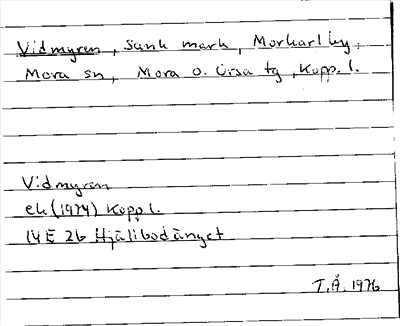 Vidmyren, sank mark, Morkarlby,
Mora sn, Mora o. Orsa tg, Kopp. l.
Vidmyren
ek (1974) Kopp l.
14 E 2b Hjälibodänget
T.Å. 1976